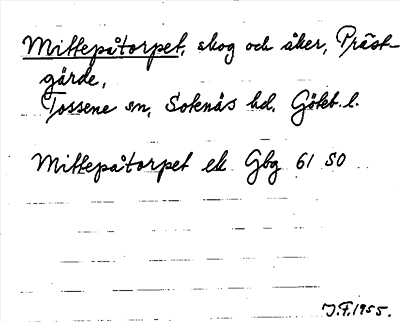 Mittepåtorpet, skog och åker, Präst-
gärde,
Tossene sn, Sotenäs hd. Göteb. l.
Mittepåtorpet ek Gbg 61 SO
J.F. 1955.